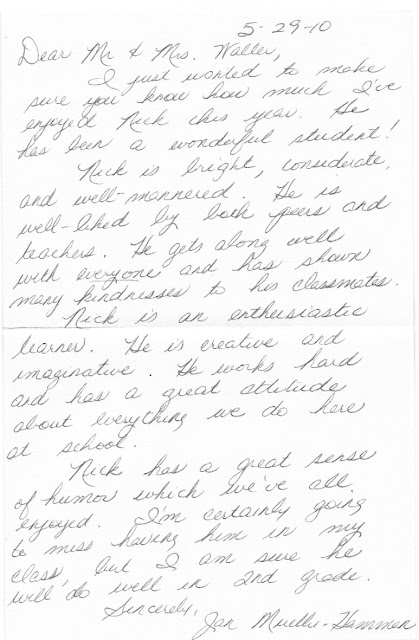 5-29-10
Dear Mr & Mrs. Waller,
I just wanted to make
sure you know how much I've
enjoyed Nick this year. He
has been a wonderful student!
Nick is bright, considerate,
and well-mannered. He is
well-liked by both peers and
teachers. He gets along well
with everyone and has shown
many kindnesses to his classmates.
Nick is an enthusiastic
learner. He is creative and
imaginative. He works hard
and has a great attitude
about everything we do here
at school.
Nick has a great sense
of humor which we've all
enjoyed. I'm certainly going
to miss having him in my
class, but I am sure he
will do well in 2nd grade.
Sincerely,
Jan Mueller-Hamman